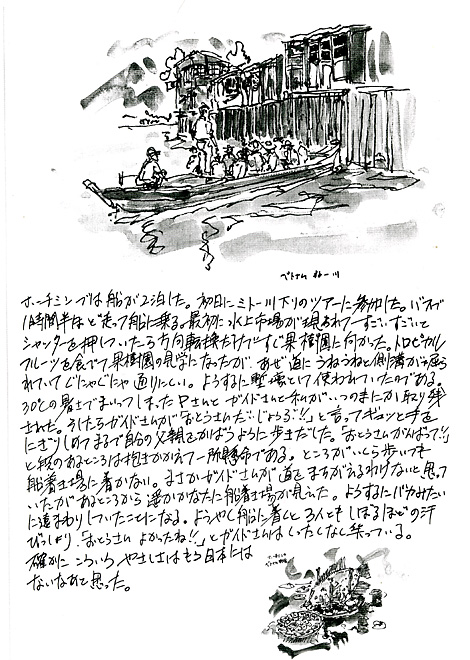 ベトナム ミトー川
ホーチミンでは船が2泊した。初日にミトー川下りのツアーに参加した。バスで
1時間半ほど走って船に乗る。最初に水上市場が現われて「すごいすごい」と
シャッターを押していたら方向転換もせずすぐ果樹園に向かった。トロピカル
フルーツを食べて果樹園の見学になったが、あぜ道にうねうねと側溝が掘ら
れていてぐじゃぐじゃ通りにくい。ようするに塹壕として使われていたのである。
30℃の暑さでまいってしまったYさんとガイドさんと私がいつのまにか取り残
された。そしたらガイドさんが「おとうさんだいじょうぶ!!」と言ってギュッと手を
にぎりしめてまるで自分の父親をかばうように歩きだした。「おとうさんがんばって!!」
と段のあるところは抱きかかえて一所懸命である。ところがいくら歩いても
船着き場に着かない。まさかガイドさんが道をまちがえるわけないと思って
いたがあるところから遥かかなたに船着き場が見えた。ようするにバカみたい
に遠まわりしていたことになる。ようやく船に着くと3人ともしぼるほどの汗
びっしょり、「おとうさん よかったね!!」とガイドさんはしたたしなく笑っている。
確かに こういう やさしさは もう日本には
ないなあと思った。